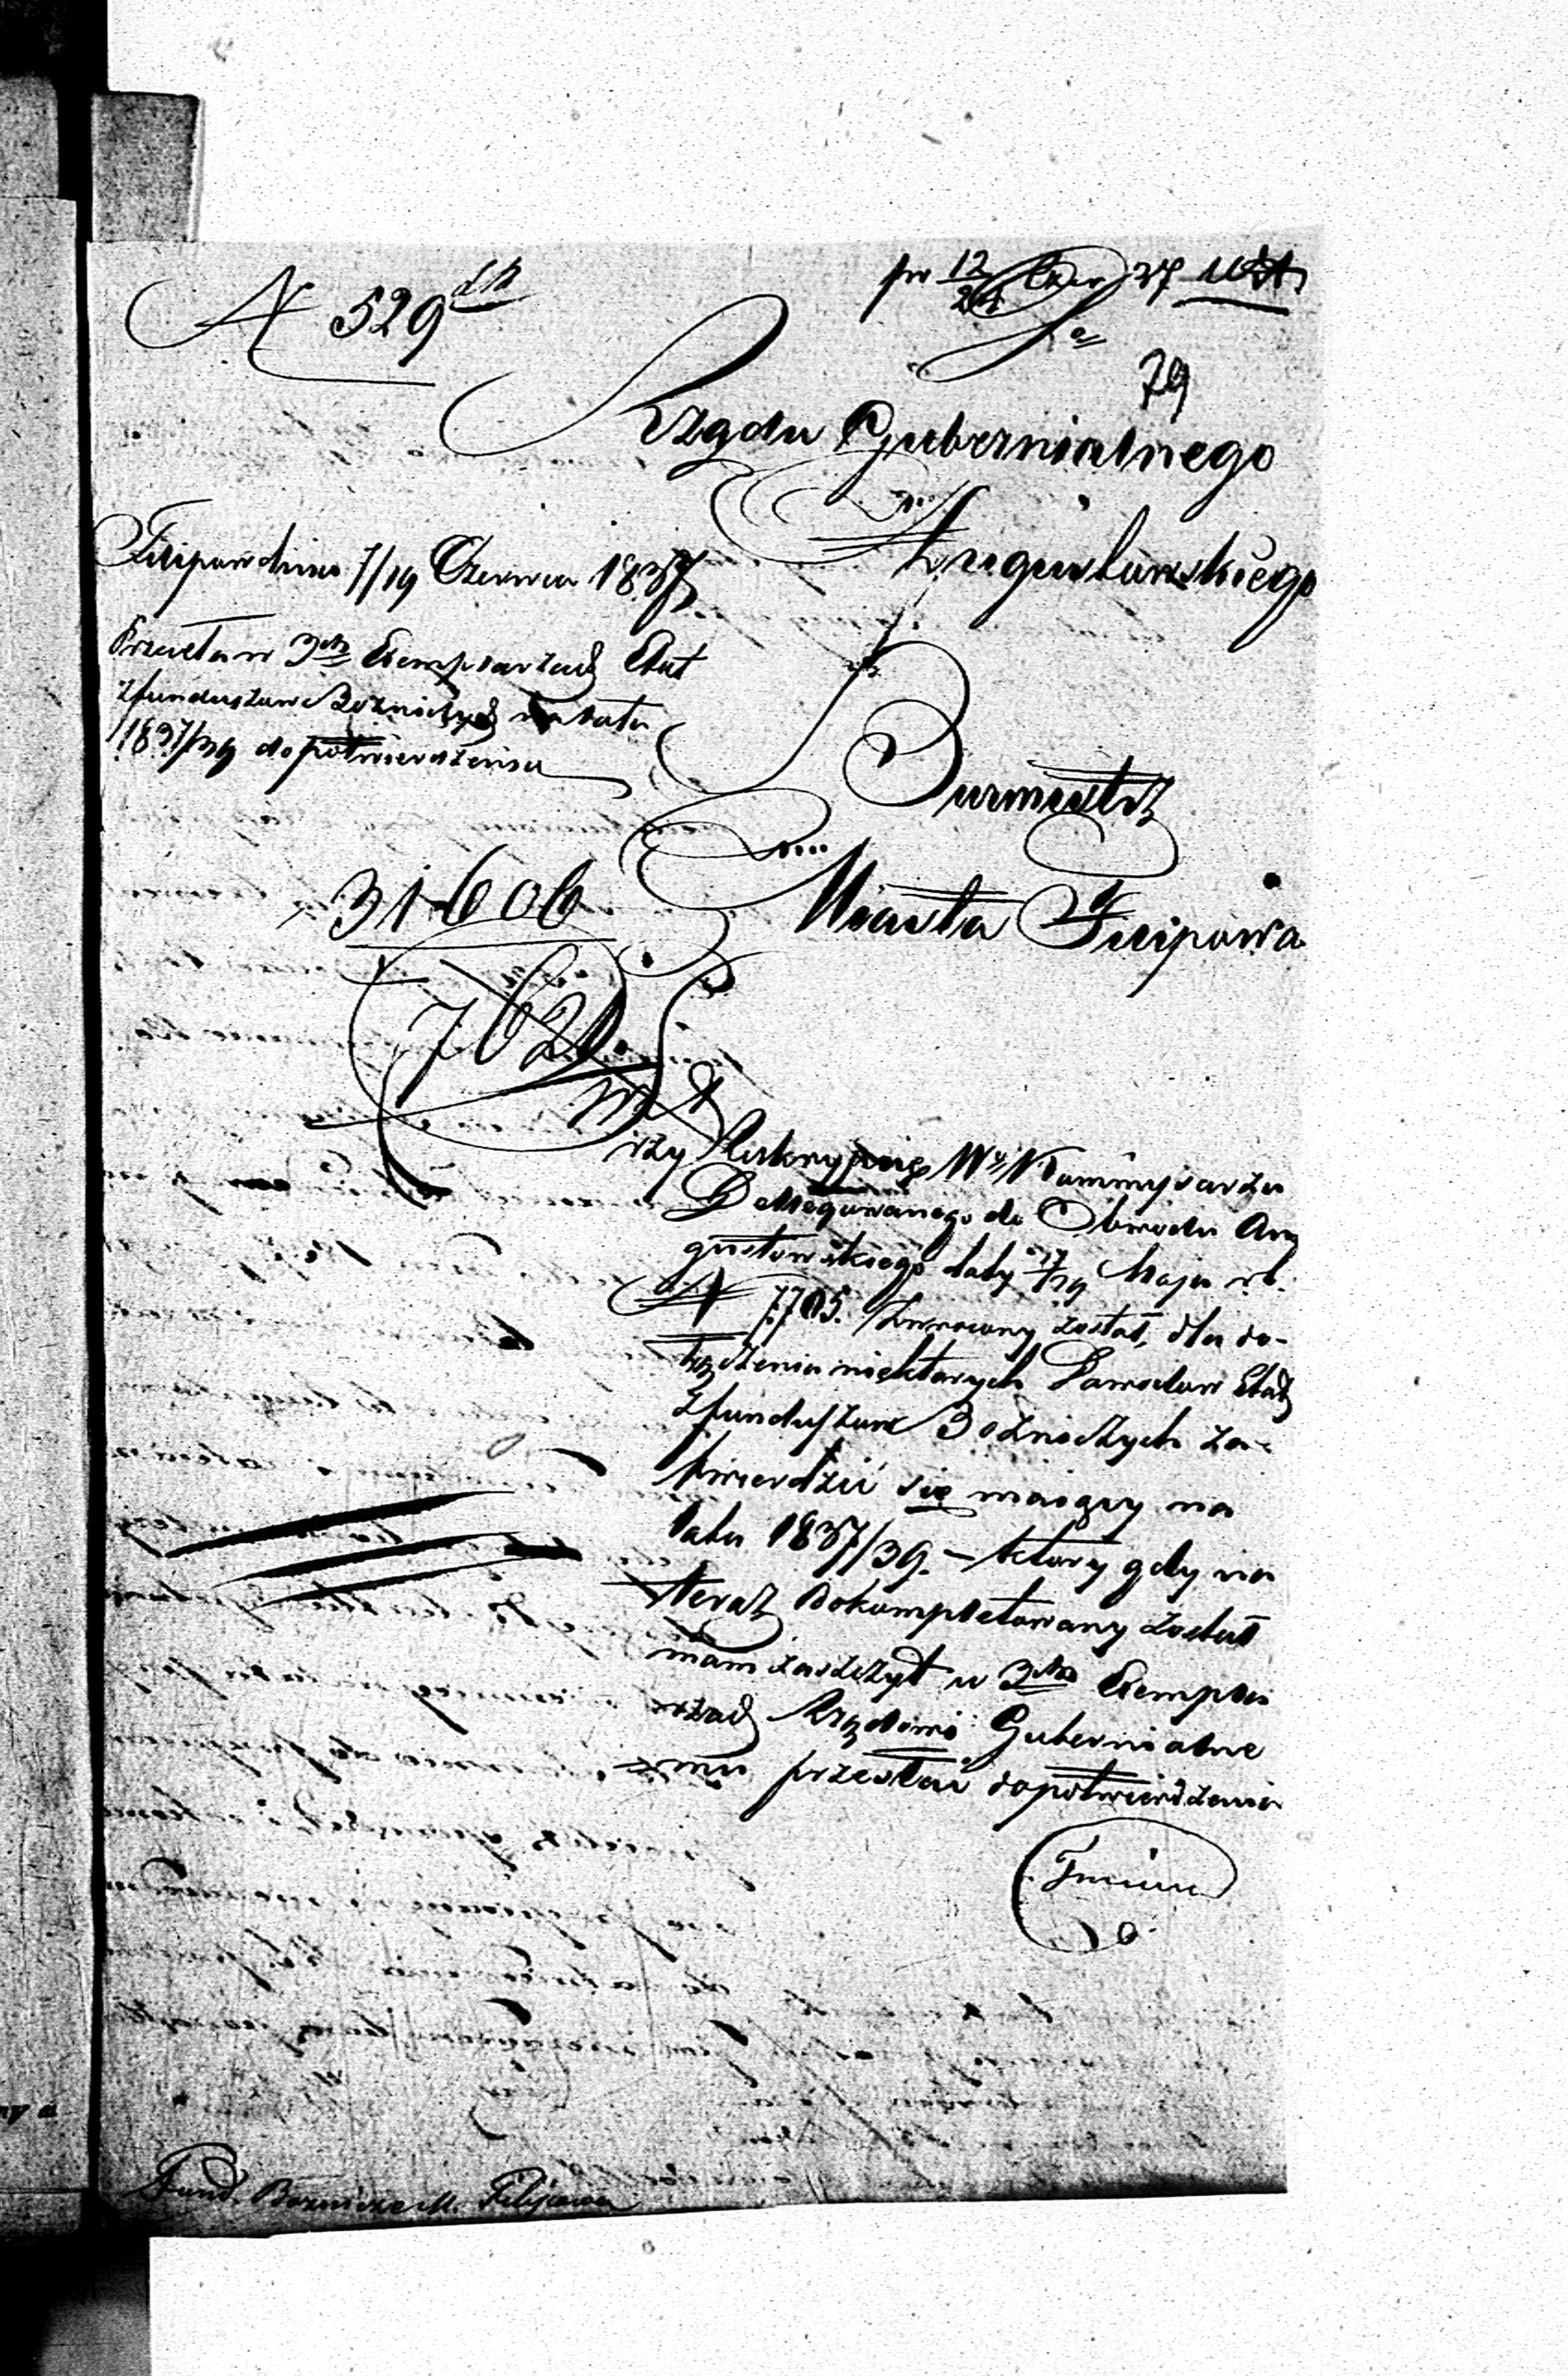 N 529
pr 12/24 Czer 37
79
Rządu Gubernialnego
Augustowskiego
Filipów dnia 7/19 Czerwca 1837
Przesyła w 3ch Exemplarzach Etat
z funduszów Bożniczych na lata
1837/39 do potwierdzenia
Burmistrz
Miasta Filipowa
31606
762
Przy Reskrypcie Wgo Kommissarza
Delegowanego do Obwodu Au
gustowskiego daty 17/29 Maja r.b.
N 7705. zwrócony został, dla do-
łączenia niektórych Dowodów Etat
z funduszów Bożniczych za-
twierdzić się mający na
lata 1837/39. – który gdy na
teraz dokompletowany został
mam zaszczyt w 3ch Exempla
rzach Rządowi Gubernialne
mu przesłać do potwierdzenia
Fund. Bóżnicze M. Filipowa